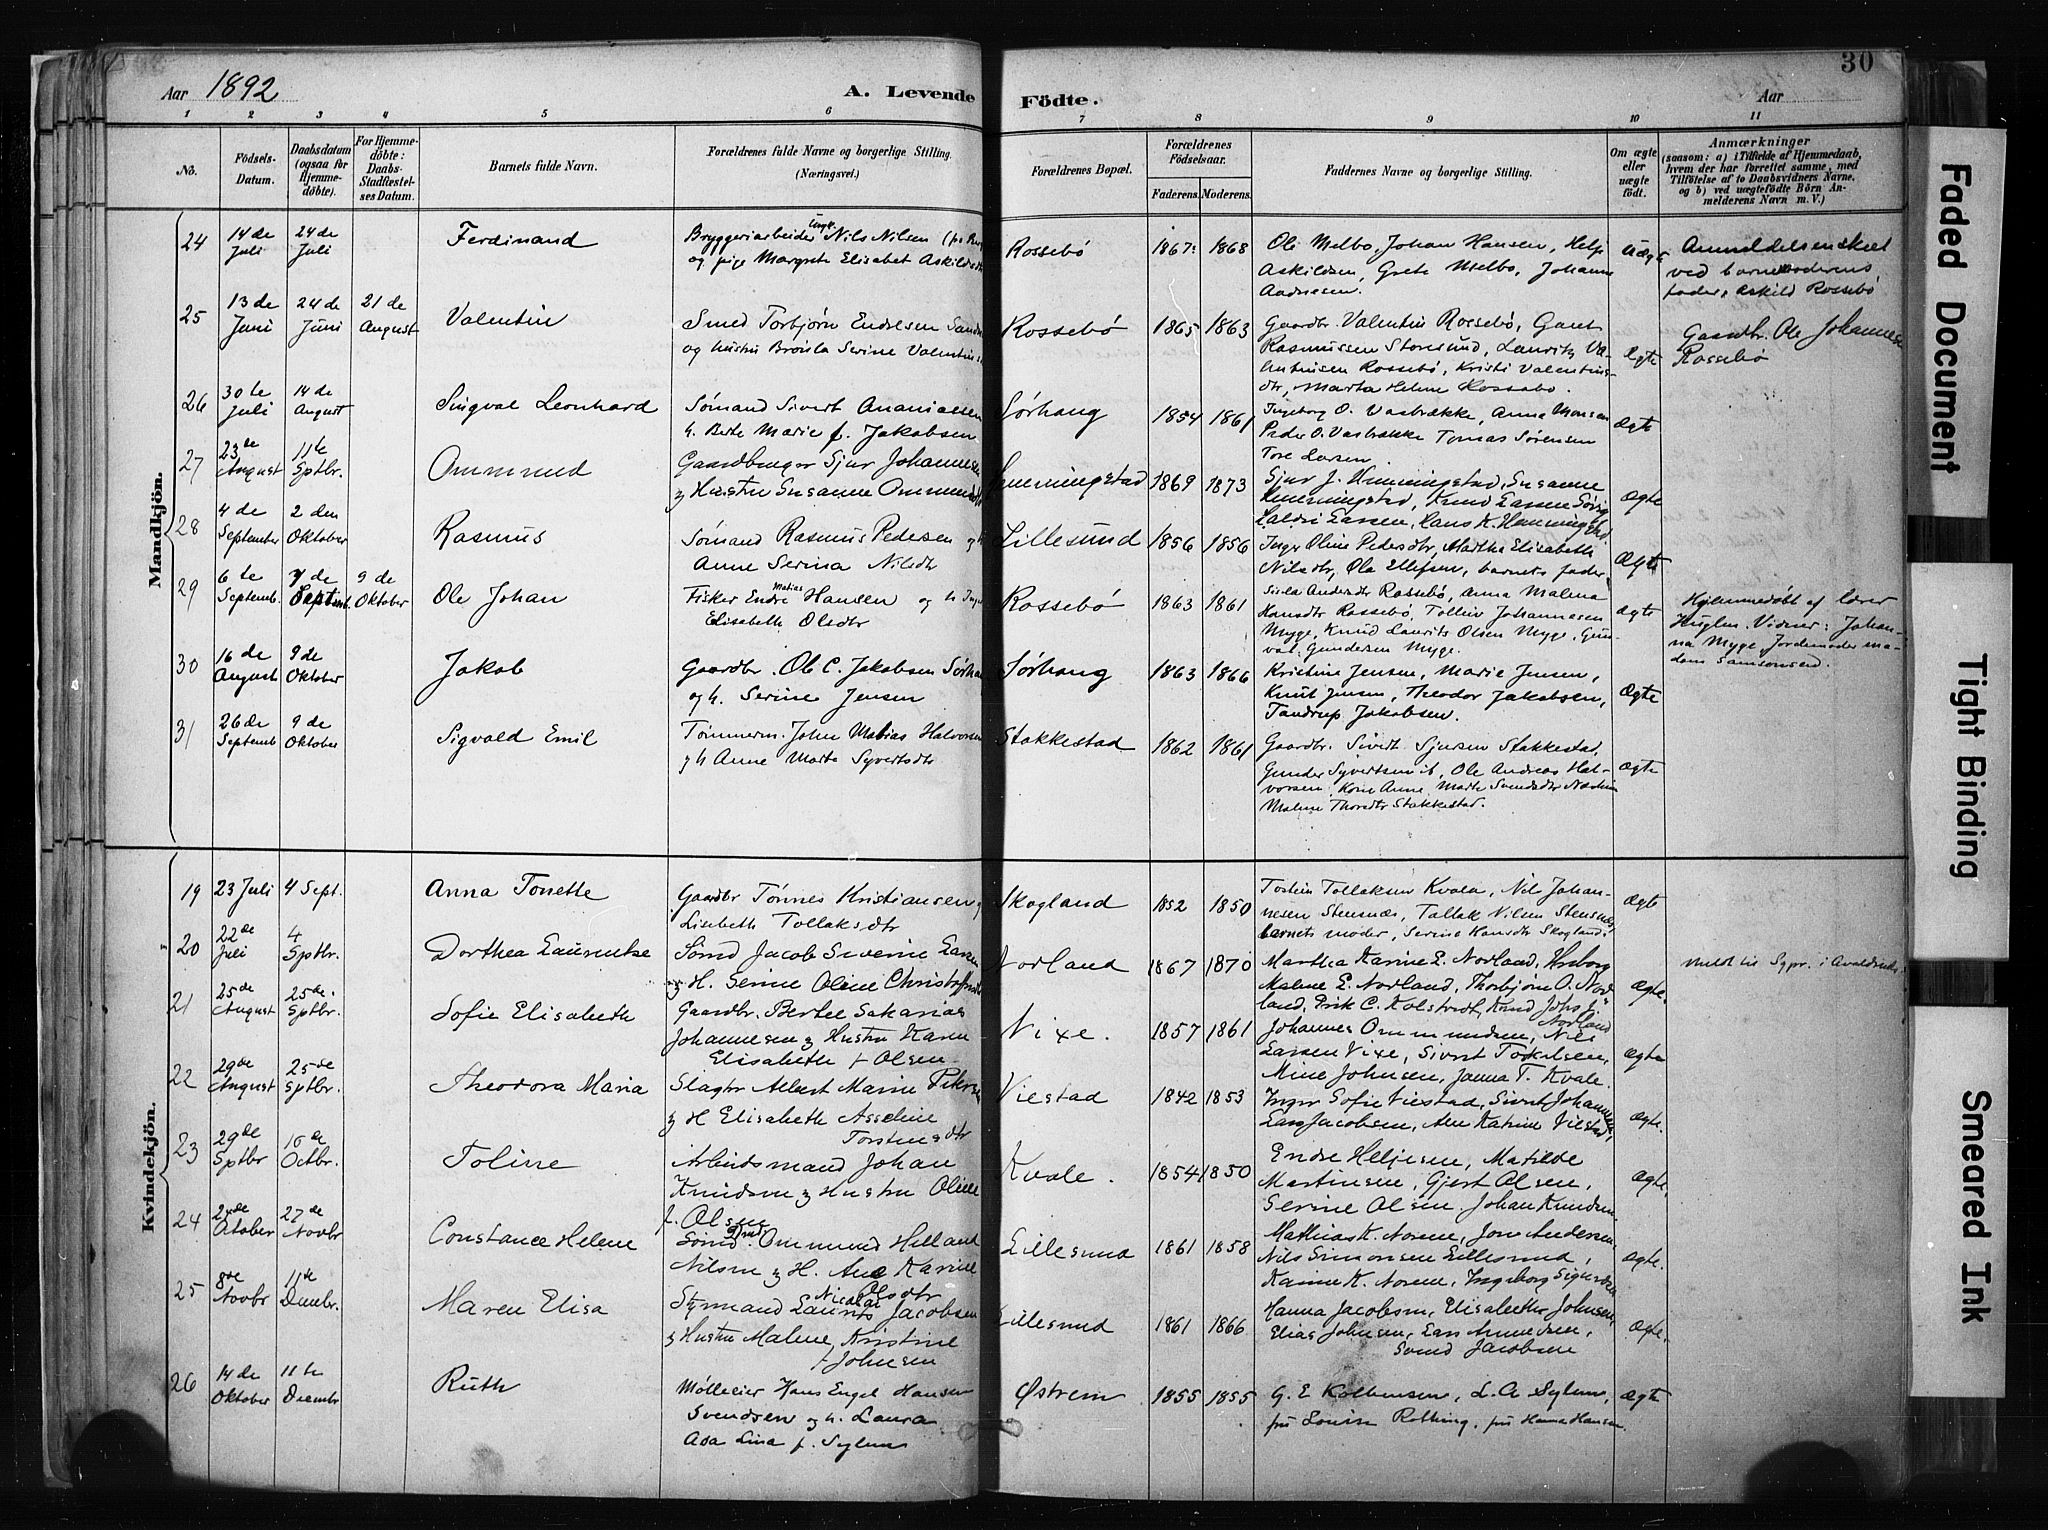 Aar 1892
A. Levende
Födte.
Aar
30
1 2 3 4 5 6 7 8 9 10 11
No.
Födsels-
Datum.
Daabsdatum
(ogsaa for
Hjemme-
döbte).
For Hjemme-
döbte:
Daabs-
Stadfæstel-
ses Datum.
Barnets fulde Navn.
Forældrenes fulde Navne og borgerlige Stilling.
(Næringsvei.)
Forældrenes Bopæl.
Forældrenes
Födselsaar.
Faderens. Moderens.
Faddernes Navne og borgerlige Stilling.
Om ægte
eller
uægte
födt.
Anmærkninger
(saasom: a) i Tilfælde af Hjemmedaab,
hvem der har forrettet samme, med
Tilföielse af to Daabsvidners Navne,
og b) ved uægtefödte Börn An-
melderens Navn m. V.)
Mandkjön.
24 14 de Juli 24 de Juli Ferdinand
Bryggeriarbeider Ungk. Nils Nilsen
og pige Margrete Elisabet Askildsdtr
Rossebø 1867 1868
Ole Melbø, Johan Hansen, Helje
Askildsen, Grete Melbø, Johanne
Andresen.
Uægte
Anmeldelsen skeet
ved barnemoderens
fader, Askild Rossebø
25 13 de Juni 24 de Juni 21 de August Valentin
Smed Torbjørn Endresen
og hustru Brønla Serine Valentins
Rossebø 1865 1863
Gaardbr. Valentin Rossebø, Gant
Rasmussen Storesund, Lauritz Va-
lentinsen Rossebø, Kristi Valentins-
dtr, Marta Helene Rossebø.
Ægte
Gaardbr. Ole Johannese
Rossebø
26 30 te Juli 14 de August Singval Leonhard
Sømand Sivert Ananiassen
h. Berte Marie f. Jakobsen
Sørhaug 1854 1861
Ingeborg O. Vasbrække, Anna Monsen
Peder O. Vasbrække Tomas Sørensen
Tore Larsen.
Ægte
27 23de August 11te Sptbr. Ommund
Gaardbruger Sjur Johannesen
& Hustru Susanne Ommundsdtr
Hemmingstad 1869 1873
Sjur J. Hemmingstad, Susanne
Hemmingstad, Knud Larsen
Larsen, Hans K. Hemmingstad
Ægte
28 4 de September 2 den Oktober Rasmus
Sømand Rasmus Pedersen
Anne Serina Nilsdtr
Lillesund 1856 1856
Inger Oline Pedersdtr, Martha Elisabeth
Nilsdtr, Ole Ellefsen, barnets fader.
Ægte
29 6 te Septemb. 7 de Septemb. 9 de Oktober Ole Johan
Fisker Endre Matias Hansen og h Inger
Elisabeth Olsdtr
Rossebø 1863 1861
Andersdtr Rossebø, Anna Malena
Hansdtr Rossebø, Tollein Johannesen
Myge, Knud Laurits Olsen Myge, Gun-
Gundersen Myge.
ægte
Hjemmedøbt af lærer
Huglen. Vidner: Johan-
na Myge, Jordemoder ma-
dam Samsonsen.
30 16 de August 9 de Oktober Jakob
Gaardbr. Ole C. Jakobsen Sørhau
og h. Serine Jensen
Sørhaug 1863 1866
Kristine Jensen, Marie Jensen,
Knut Jensen, Theodor Jakobsen,
Tandrup Jakobsen.
Ægte
31 26 de Septemb 9 de Oktober Sigvald Emil
Tømmerm. John Mathias Halvorsen
& h Anne Marta Syvertsdtr
Stakkestad 1862 1861
Gaardbr. Sivert Sjursen Stakkestad,
Gunder Syvertsen, Ole Andreas Hal-
vorsen, Kone Anne Marte Svendsdtr
Malene Thorsdtr Stakkestad.
Ægte
Kvindekjön.
19 23 Juli 4 Sept. Anna Tonette
Gaardbr Tønnes Kristiansen
Lisebeth Tollaksdtr
Skogland 1852 1850
Tostein Tollaksen Kvala, Nil Johan-
nesen Stensnæs, Tallak Nilsen Stensnæs,
barnets moder, Serine Hansdtr Skogland.
Ægte
20 22de Juli 4 Sptbr. Dorthea Laurentze
Sømd Jacob Severin Larsen
& H. Serine Oline Christoffersdtr
Norland 1867 1870
Martha Karine E. Norland,
Malene E. Norland, Thorbjørn O. Nor-
land, Erik C. Kolstvedt, Knud Johs
Norland
Ægte.
Meldt til Sgpr. i Avaldsnæs.
21 25de August 25de Sptbr. Sofie Elisabeth
Gaardbr. Bertel Sakarias
Johannesen & Hustru Karen
Elisabeth f. Olsen
Vixe. 1857 1861
Johannes Ommundsen, Nils
Larsen Vixe, Sivert Torkelsen,
Mine Johnsen, Janna T. Kvale.
Ægte
22 29de August 25de Sptbr. Theodora Maria
Slagtr Albert Marin Peters
& H Elisabeth Asseline
Torstensdtr
Viestad 1842 1853
Inger Sofie Viestad, Sivert Johannesen,
Lars Jacobsen, Ane Katrine Viestad
Ægte.
23 29de Sptbr 16de Octbr. Toline
Arbeidsmand Johan
Knudsen & Hustru Oline
f. Olsen
Kvale. 1854 1850
Endre Heljesen, Matilde
Martinsen, Gjert Olsen,
Serine Olsen, Johan Knudsen
Ægte.
24 2den Oktober 27de Novbr Constance Helene
Sømd. Ommund Helland
Nilsen & H. Ane Karine
Olsdtr
Lillesund 1861 1858
Mathias K. Norene, Jon Andersen,
Nils Simonsen Lillesund,
Karine K. Norene, Ingeborg
Ægte.
25 8de Novbr 11te Decbr. Maren Elisa
Styrmand Laurits Nicolai Jacobsen
& Hustru Malene Kristine
f Johnsen
Lillesund 1861 1866
Hanna Jacobsen, Elisabeth Johnsen
Elias Johnsen, Lars Ammedsen,
Svend Jacobsen
Ægte.
26 14 de Oktober 11 te Decembr Ruth
Mølleeier Hans Engel Hansen
Svendsen og h. Laura
Ada Lina f. Sylum
Østrem 1855 1855
G. E. Kolbensen, L. A Sylum,
fru Louise Rothing, fru Hanna Hansen
Ægte
Faded Document
Tight Binding
Smeared Ink